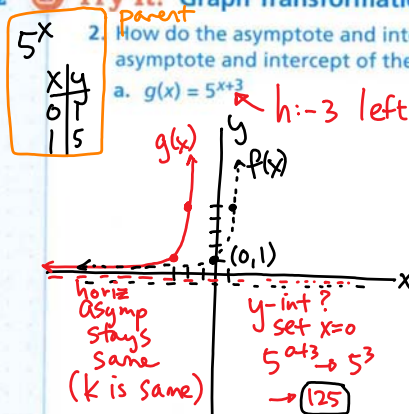 parent
5^x
x y
0 1
1 5
2. How do the asymptote and int
asymptote and intercept of the
a. g(x) = 5^x+3
h:-3 left
g(x)
y
f(x)
(0,1)
x
horiz
asymp
stays
same
(k is same)
y-int?
set x=0
5^0+3 → 5^3
→ 125